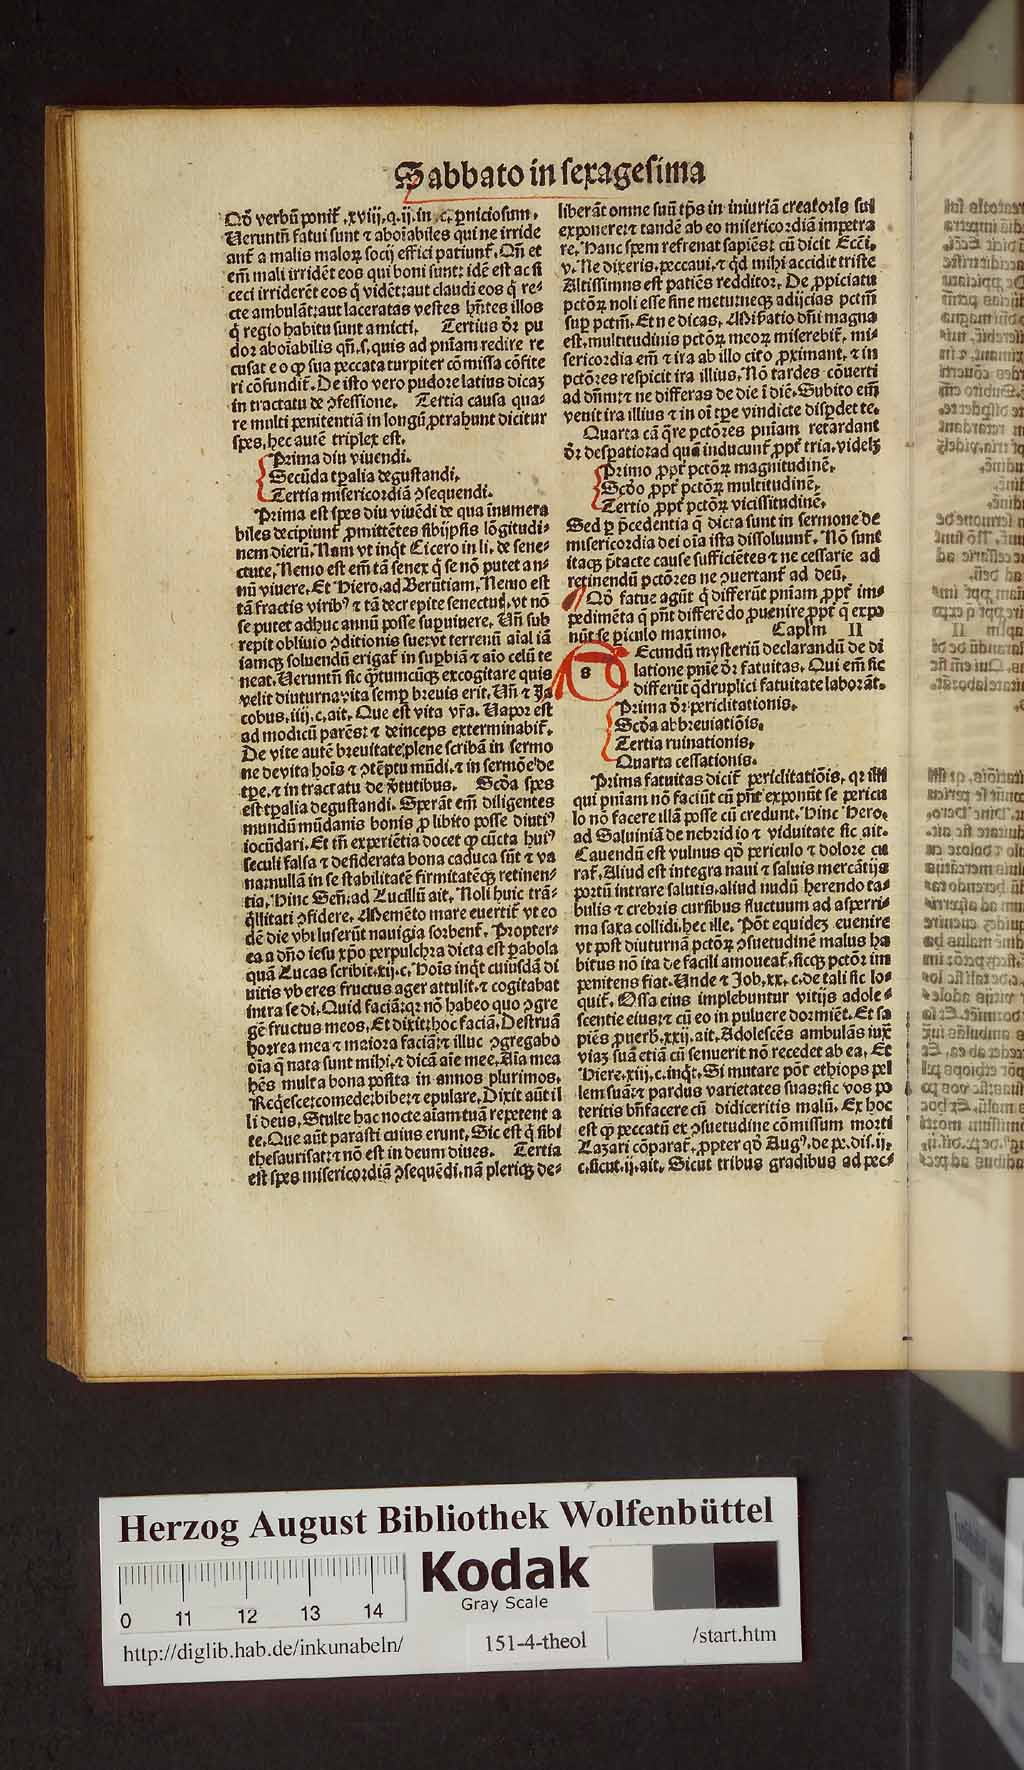 Sabbato in sexagesima
Qđ verbū poniť .xviij.q.ij.in .c. ꝑniciosum.
Veruntñ fatui sunt ⁊ aboīabiles qui ne irride
anť a malis maloꝝ socij effici patiunť. Oñ et
em̄ mali irridēt eos qui boni sunt: idē est ac si
ceci irriderēt eos q̇ vidēt: aut claudi eos q̇ re-
cte ambulāt: aut laceratas vestes hñtes illos
q̇ regio habitu sunt amicti. Tertius ď pu
dor aboīabilis qñ.s. quis ad pñiam redire re
cusat eo ꝙ sua peccata turpiter cōmissa cōfite
ri cōfundiť. De isto vero pudore latius dicaꝫ
in tractatu de ↄfessione. Tertia causa qua-
re multi penitentiā in longū ꝓtrahunt dicitur
spes. hec autē triplex est.
Prima diu viuendi.
Secūda tꝑalia degustandi.
Tertia misericordiā ↄsequendi.
Prima est spes diu viuēdi de qua inumera
biles decipiunť ꝓmittētes sibijpsis lōgitudi-
nem dierū. Nam vt inq̇t Cicero in li. de sene-
ctute. Nemo est em̄ tā senex q̇ se nō putet an-
nū viuere. Et Hiero. ad Berūtiam. Nemo est
tā fractis viribꝰ ⁊ tā decrepite senectu. vt nō
se putet adhuc annū posse suꝑuiuere. Uñ sub
repit obliuio ↄditionis sue: vt terrenū aīal iā
iamqꝫ soluendū erigať in suꝑbiā ⁊ aīo celū te
neat. Veruntñ sic q̄ꝫtumcūqꝫ excogitare quis
velit diuturna, vita semꝑ breuis erit. Uñ ⁊ Ja
cobus .iiij.c. ait. Que est vita vr̄a. Vapor est
ad modicū parēs: ⁊ deinceps exterminabiť.
De vite autē breuitate plene scribā in sermo
ne de vita hoīs ⁊ ↄtēptu mūdi. ⁊ in sermōe de
tꝑe. ⁊ in tractatu de v̓tutibus. Scďa spes
est tꝑalia degustandi. Sperāt em̄ diligentes
mundū mūdanis bonis ꝓ libito posse diutiꝰ
iocūdari. Et tñ experiētia docet ꝙ cūcta huiꝰ
seculi falsa ⁊ desiderata bona caduca sūt ⁊ va
na: nullā in se stabilitatē firmitatēqꝫ retinen-
tia. Hinc Señ. ad Lucillū ait. Noli huic trā-
q̇llitati ↄfidere. Memēto mare euertiť vt eo
dē die vbi luserūt nauigia sorbenť. Propter-
ea a dño iesu xp̄o perpulchra dicta est ꝑabola
quā Lucas scribit .xij.c. Hoīs inq̇t cuiusdā di
uitis vberes fructus ager attulit. ⁊ cogitabat
intra se di. Quid faciā: qꝛ nō habeo quo ↄgre
gē fructus meos. Et dixit: hoc faciā. Destruā
horrea mea ⁊ maiora faciā: ⁊ illuc ↄgregabo
oīa q̄ nata sunt mihi. ⁊ dicā aīe mee. Aīa mea
hēs multa bona posita in annos plurimos.
Req̇esce: comede: bibe: ⁊ epulare. Dixit aūt il
li deus. Stulte hac nocte aīam tuā repetent a
te. Que aūt parasti cuius erunt. Sic est q̇ sibi
thesaurisat: ⁊ nō est in deum diues. Tertia
est spes misericordiā ↄsequēdi. nā pleriqꝫ de-
liberāt omne suū tp̄s in iniuriā creatoris sui
exponere: ⁊ tandē ab eo misericordiā impetra
re. Hanc spem refrenat sapiēs: cū dicit Ecc̄i.
v. Ne dixeris. peccaui. ⁊ qđ mihi accidit triste
Altissimus est patiēs redditor. De ꝓpiciatu
pctōꝝ noli esse sine metu: neqꝫ adijcias pctm̄
suꝑ pctm̄. Et ne dicas. Miꝑatio dñi magna
est. multitudinis pctōꝝ meoꝝ miserebiť. mi-
sericordia em̄ ⁊ ira ab illo cito ꝓximant. ⁊ in
pctōres respicit ira illius. Nō tardes cōuerti
ad dñm: ⁊ ne differas de die ī diē. Subito em̄
venit ira illius ⁊ in oī tꝑe vindicte disꝑdet te.
Quarta cā q̄re pctōres pñiam retardant
ď desꝑatio: ad quā inducunť ꝓpť tria. videlꝫ
Primo ꝓpť pctōꝝ magnitudinē.
Scďo ꝓpť pctōꝝ multitudinē.
Tertio ꝓpť pctōꝝ vicissitudinē.
Sed ꝑ p̄cedentia q̄ dicta sunt in sermone de
misericordia dei oīa ista dissoluunť. Nō sunt
itaqꝫ p̄tacte cause sufficiētes ⁊ necessarie ad
retinendū pctōres ne ↄuertanť ad deū.
Qđ fatue agūt q̇ differūt pñiam ꝓpť im-
pedimēta q̄ pñt differēdo ꝓuenire ꝓpť q̄ expo
nūt se ꝑiculo maximo. Caplm II
s Ecundū mysteriū declarandū de di
latione pnīe ď fatuitas. Qui em̄ sic
differūt q̄druplici fatuitate laborāt.
Prima ď periclitationis.
Scďa abbreuiatiōis.
Tertia ruinationis.
Quarta cessationis.
Prima fatuitas diciť periclitatiōis. qꝛ illi
qui pñiam nō faciūt cū pñt exponūt se pericu
lo nō facere illā posse cū credunt. Hinc Hero.
ad Saluiniā de nebridio ⁊ viduitate sic ait.
Cauendū est vulnus qđ periculo ⁊ dolore cu
rať. Aliud est integra naui ⁊ saluis mercātijs
portū intrare salutis. aliud nudū herendo ta-
bulis ⁊ crebris cursibus fluctuum ad asperri-
ma saxa collidi. hec ille. Pōt equideꝫ euenire
vt post diuturnā pctōꝝ ↄsuetudinē malus ha
bitus nō ita de facili amoueať. sicqꝫ pctōr im
penitens fiat. Unde ⁊ Job .xx.c. de tali sic lo-
quiť. Ossa eius implebuntur vitijs adole-
scentie eius: ⁊ cū eo in puluere dormiēt. Et sa
piēs ꝓuerb̄.xxij.ait. Adolescēs ambulās iuxͭ
viaꝫ suā etiā cū senuerit nō recedet ab ea. Et
Hiere.xiij.c. inq̇t. Si mutare pōt ethiops pel
lem suā: ⁊ pardus varietates suas: sic vos po
teritis bñfacere cū didiceritis malū. Ex hoc
est ꝙ peccatū ex ↄsuetudine cōmissum morti
Lazari cōparať. ꝓpter qđ Augꝰ. de pe. dis. ij.
c. sicut. ij. ait. Sicut tribus gradibus ad pec-
Herzog August Bibliothek Wolfenbüttel
Kodak
Gray Scale
0 11 12 13 14
http://diglib.hab.de/inkunabeln/ 151-4-theol /start.htm